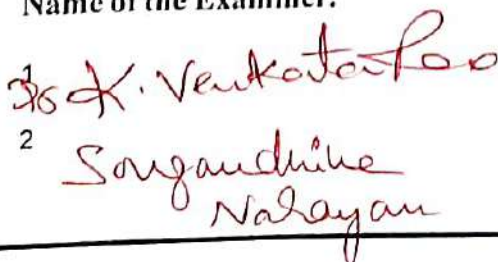 Name of the Examiner:
1
K. Venkata Rao
2
Sougandhine
Narayan